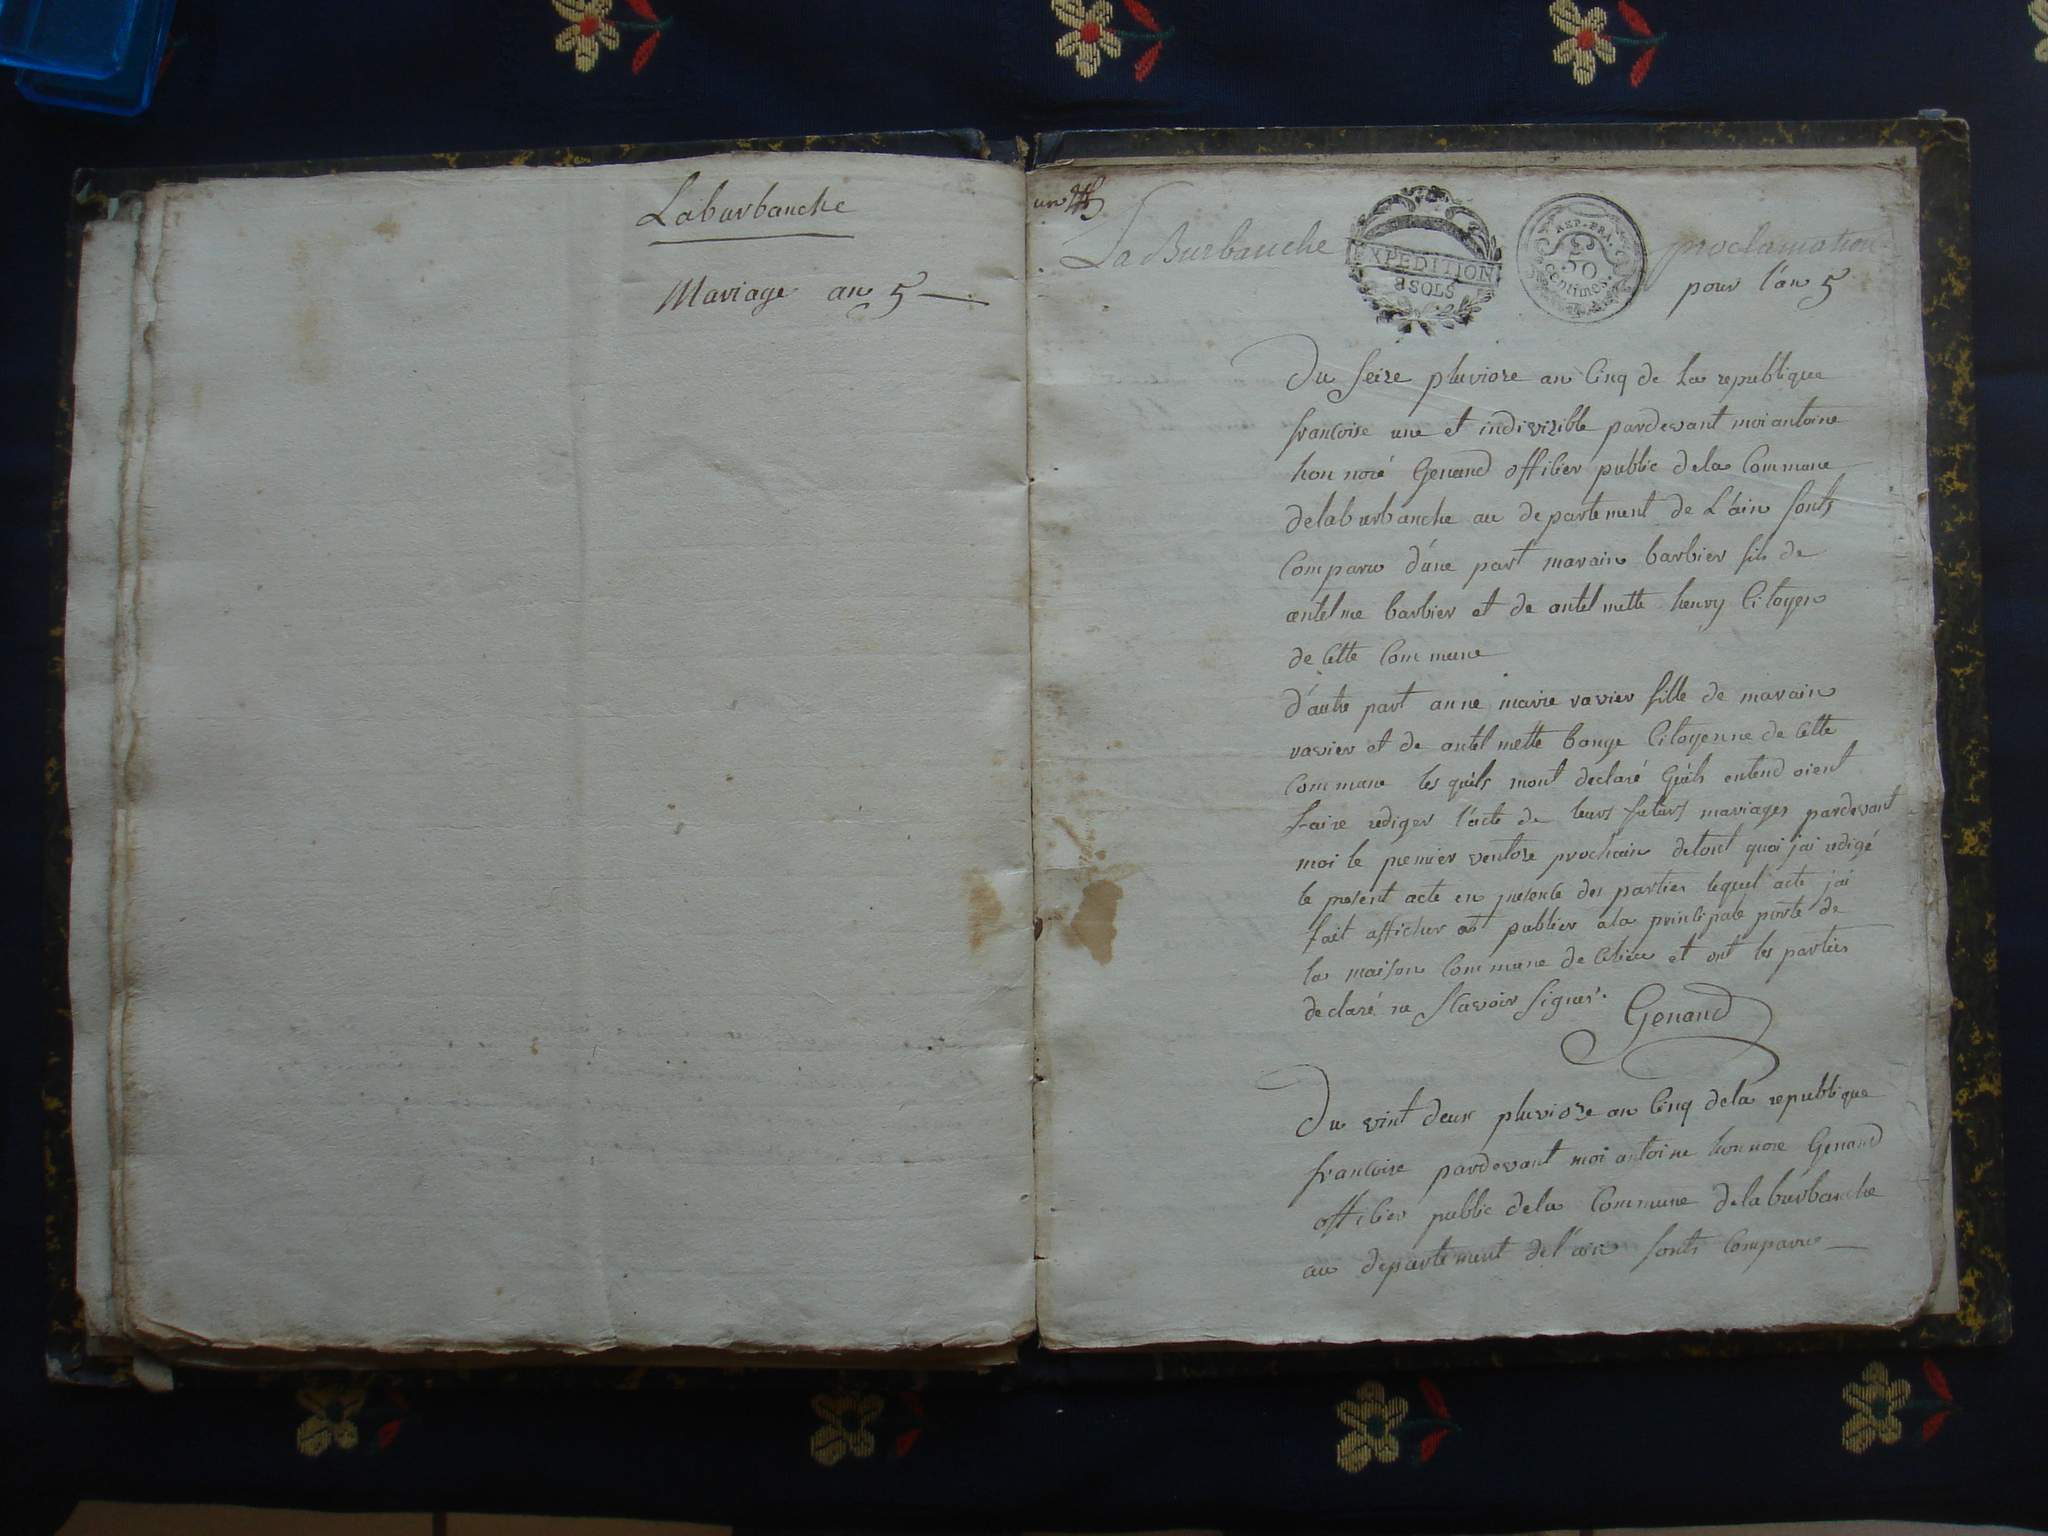 Laburbanche
Mariage an 5
un
La Burbanche
EXPEDITION
SOLS
REP. FRA.
50
centimes
proclamation
pour l'an 5
Du seize pluviose an cinq de La republique
francoise une et indivizible pardevant moi antoine
honnoré Genand officier public dela Commune
delaburbanche au departement de L'ain sonts
Comparu d'une part marain barbier fils de
antelme barbier et de antelmette henry Citoyen
de Cette Commune
d'autre part anne marie ravier fille de marain
ravier et de antelmette bonge Citoyenne de Cette
Commune les quèls mont declaré Quèls entendoient
faire rediger l'acte de leurs futurs mariages pardevant
moi le premier ventose prochain detout quoi j'ai redigé
le present acte en presence des parties lequel acte jai
fait afficher et publier ala principale porte de
la maison Commune de Celieu et ont les parties
declaré ne scavoir signer.
Genand
Du vint deux pluviose an Cinq dela republique
francoise pardevant moi antoine honnore Genand
officier public dela Commune delaburbanche
au departement del'ain sonts Comparus